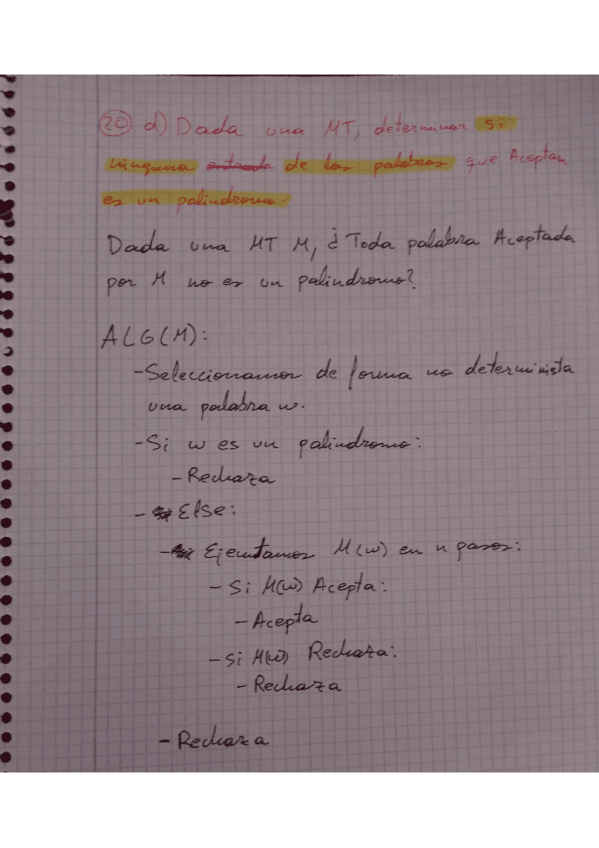 20 d) Dada una MT, determinar si
ninguna entrada de las palabras que Aceptan
es un palindromo.
Dada una MT M, ¿Toda palabra Aceptada
por M no es un palindromo?
ALG(M):
-Seleccionamos de forma no determinista
una palabra w.
-Si w es un palindromo:
-Rechaza
- Else:
- Ejecutamos M(w) en n pasos:
- Si M(w) Acepta:
- Acepta
- Si M(w) Rechaza:
- Rechaza
- Rechaza